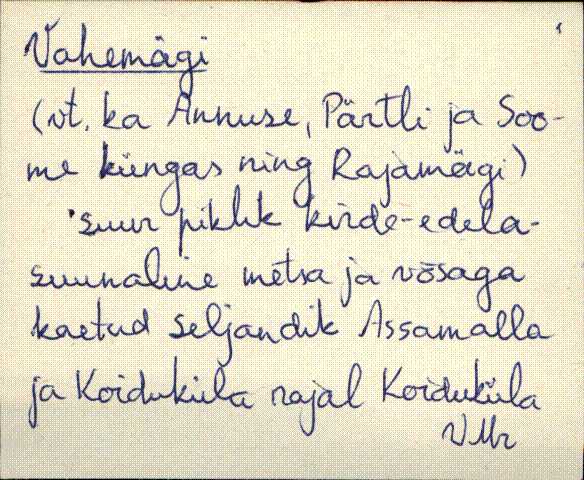 Vahemägi
(vt. ka Annuse, Pärtli ja Soo-
me küngas ning Rajamägi)
suur piklik kirde-edela-
suunaline metsa ja võsaga
kaetud seljandik Assamalla
ja Koiduküla rajal Koiduküla
VMr